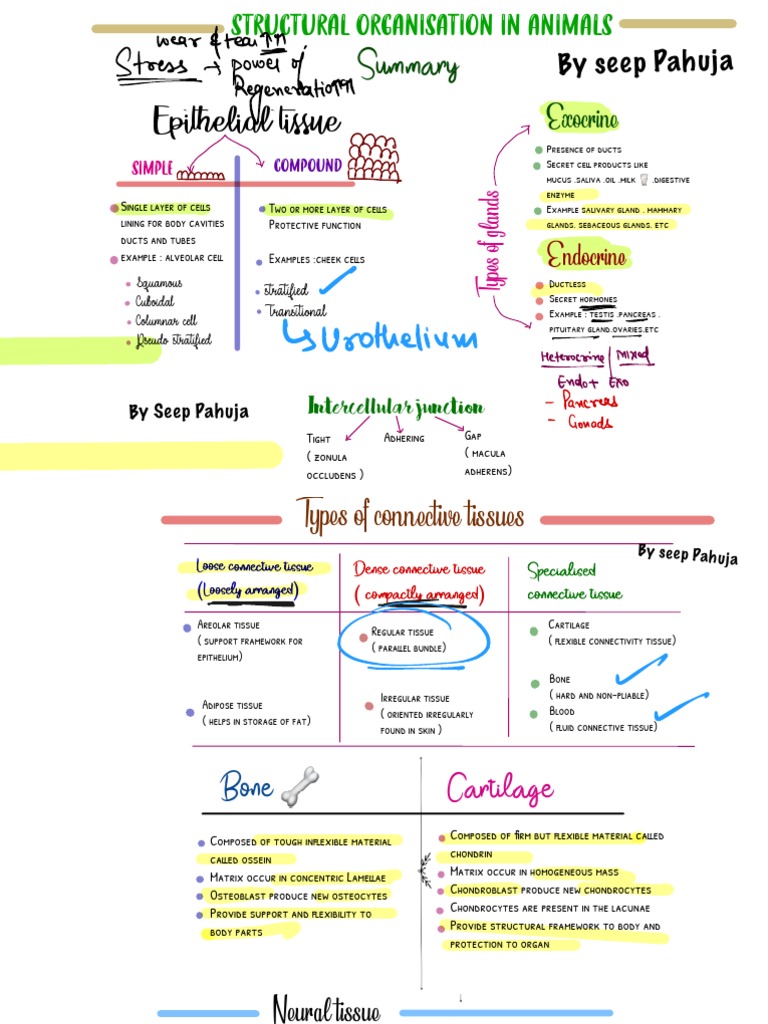 STRUCTURAL ORGANISATION IN ANIMALS
wear & tear ↑↑
Stress → power of
Regeneration ↑↑
Summary
By seep Pahuja
Epithelial tissue
SIMPLE
COMPOUND
SINGLE LAYER OF CELLS
LINING FOR BODY CAVITIES
DUCTS AND TUBES
EXAMPLE : ALVEOLAR CELL
Squamous
Cuboidal
Columnar cell
Pseudo stratified
TWO OR MORE LAYER OF CELLS
PROTECTIVE FUNCTION
EXAMPLES :CHEEK CELLS
stratified
Transitional
Urothelium
Types of glands
Exocrine
PRESENCE OF DUCTS
SECRET CELL PRODUCTS LIKE
MUCUS .SALIVA .OIL .MILK 🥛 .DIGESTIVE
ENZYME
EXAMPLE SALIVARY GLAND . MAMMARY
GLANDS. SEBACEOUS GLANDS. ETC
Endocrine
DUCTLESS
SECRET HORMONES
EXAMPLE : TESTIS .PANCREAS .
PITUITARY GLAND.OVARIES.ETC
Heterocrine | Mixed
Endo + Exo
- Pancreas
- Gonads
By Seep Pahuja
Intercellular junction
TIGHT
( ZONULA
OCCLUDENS )
ADHERING
GAP
( MACULA
ADHERENS)
Types of connective tissues
By seep Pahuja
Loose connective tissue
(Loosely arranged)
Dense connective tissue
( compactly arranged)
Specialised
connective tissue
AREOLAR TISSUE
( SUPPORT FRAMEWORK FOR
EPITHELIUM)
REGULAR TISSUE
( PARALLEL BUNDLE)
CARTILAGE
( FLEXIBLE CONNECTIVITY TISSUE)
ADIPOSE TISSUE
( HELPS IN STORAGE OF FAT)
IRREGULAR TISSUE
( ORIENTED IRREGULARLY
FOUND IN SKIN )
BONE
( HARD AND NON-PLIABLE)
BLOOD
( FLUID CONNECTIVE TISSUE)
Bone
COMPOSED OF TOUGH INFLEXIBLE MATERIAL
CALLED OSSEIN
MATRIX OCCUR IN CONCENTRIC LAMELLAE
OSTEOBLAST PRODUCE NEW OSTEOCYTES
PROVIDE SUPPORT AND FLEXIBILITY TO
BODY PARTS
Cartilage
COMPOSED OF FIRM BUT FLEXIBLE MATERIAL CALLED
CHONDRIN
MATRIX OCCUR IN HOMOGENEOUS MASS
CHONDROBLAST PRODUCE NEW CHONDROCYTES
CHONDROCYTES ARE PRESENT IN THE LACUNAE
PROVIDE STRUCTURAL FRAMEWORK TO BODY AND
PROTECTION TO ORGAN
Neural tissue